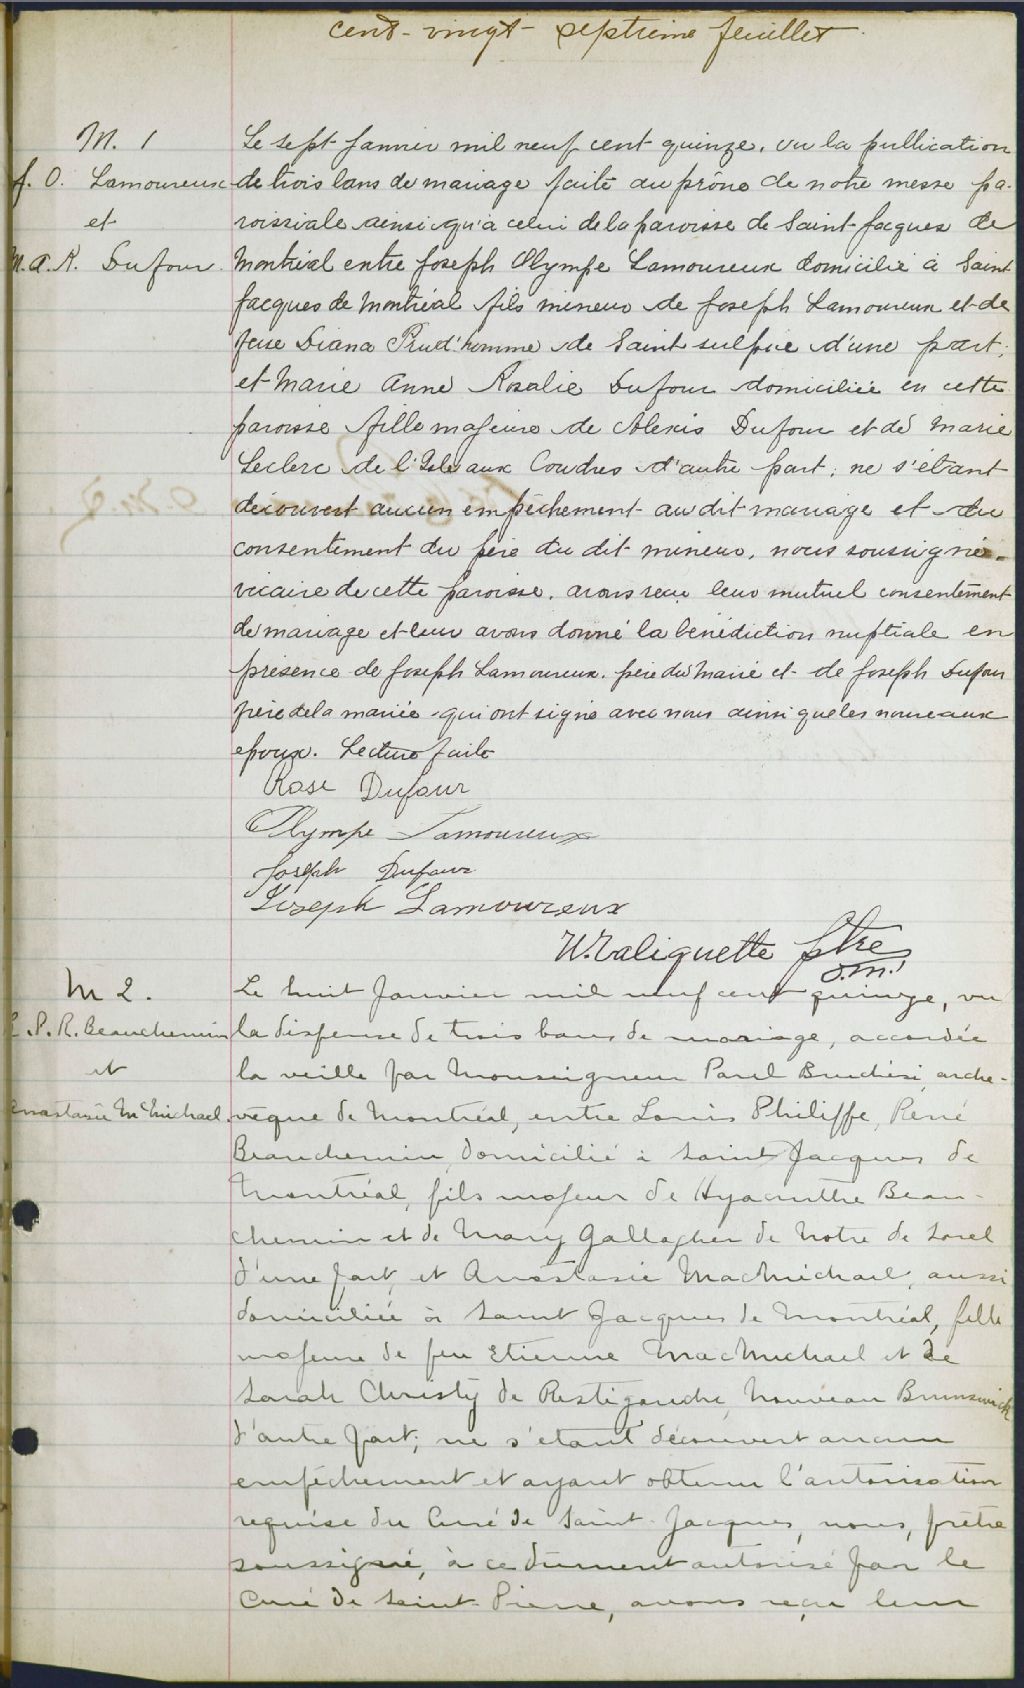 cent-vingt-septième feuillet
M. 1
J. O. Lamoureux
et
M. A. R. Dufour.
Le sept Janvier mil neuf cent quinze, vu la publication
de trois bans de mariage faite au prône de notre messe pa-
roissiale ainsi qu'à celui de la paroisse de Saint-Jacques de
Montréal entre Joseph Olympe Lamoureux domicilié à Saint
Jacques de Montréal fils mineur de Joseph Lamoureux et de
feue Diana Prud'homme de Saint sulpice d'une part;
et Marie Anne Rosalie Dufour domiciliée en cette
paroisse fille majeure de Alexis Dufour et de Marie
Leclerc de l'Isle aux Coudres d'autre part; ne s'étant
découvert aucun empêchement au dit mariage et du
consentement du père du dit mineur, nous soussigné
vicaire de cette paroisse, avons reçu leur mutuel consentement
de mariage et leur avons donné la bénédiction nuptiale en
présence de Joseph Lamoureux, père du marié et de Joseph Dufour
père de la mariée qui ont signé avec nous ainsi que les nouveaux
époux. Lecture faite
Rose Dufour
Olympe Lamoureux
Joseph Dufour
Joseph Lamoureux
W. Valiquette ptre
o.m.i
M 2.
L. P. R. Beauchemin
et
Anastasie McMichael.
Le huit Janvier mil neuf cent quinze, vu
la dispense de trois bans de mariage, accordée
la veille par Monseigneur Paul Bruchési, arche-
vêque de Montréal, entre Louis Philippe, René
Beauchemin, domicilié à Saint Jacques de
Montréal, fils majeur de Hyacinthe Beau-
chemin et de Mary Gallagher de Notre de Sorel
d'une part, et Anastasie MacMichael, aussi
domiciliée à Saint Jacques de Montréal, fille
majeure de feu Etienne MacMichael et de
Sarah Christy de Restigouche, Nouveau Brunswick
d'autre part; ne s'étant découvert aucun
empêchement et ayant obtenu l'autorisation
requise du Curé de Saint-Jacques, nous, prêtre
soussigné, à ce dûment autorisé par le
Curé de Saint-Pierre, avons reçu leur